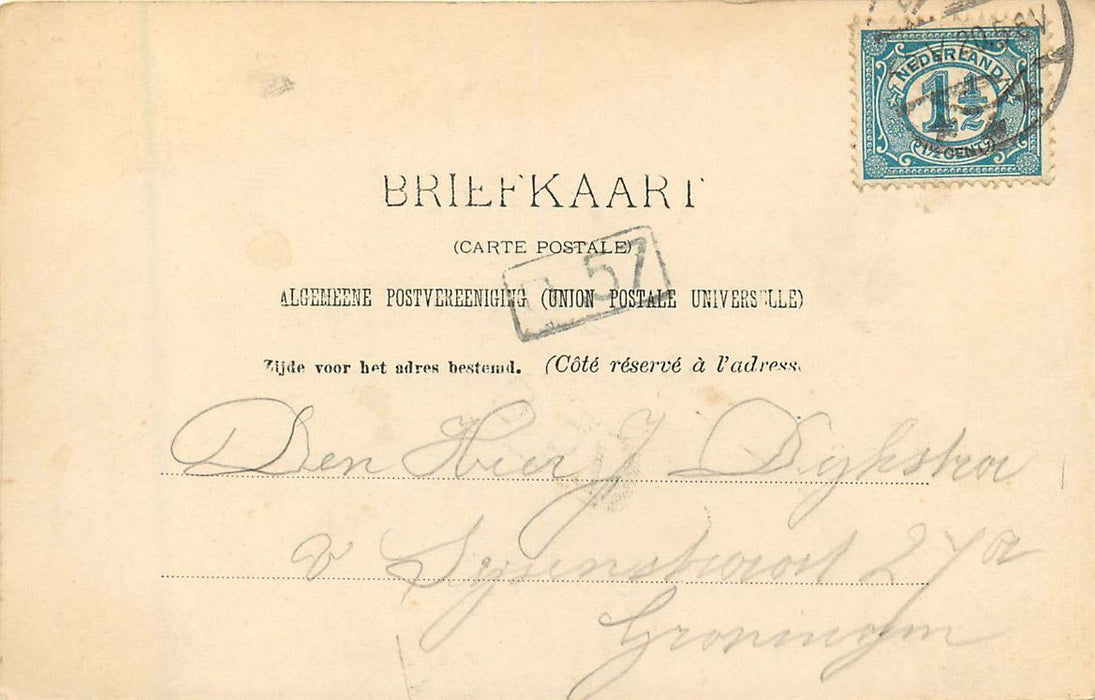 NEDERLAND
1½
1½ CENT
BRIEFKAART
(CARTE POSTALE)
57
ALGEMEENE POSTVEREENIGING (UNION POSTALE UNIVERSELLE)
Zijde voor het adres bestemd. (Côté réservé à l'adresse
Den Heer J Dijkstra
v Sysenstraat 27a
Groningen